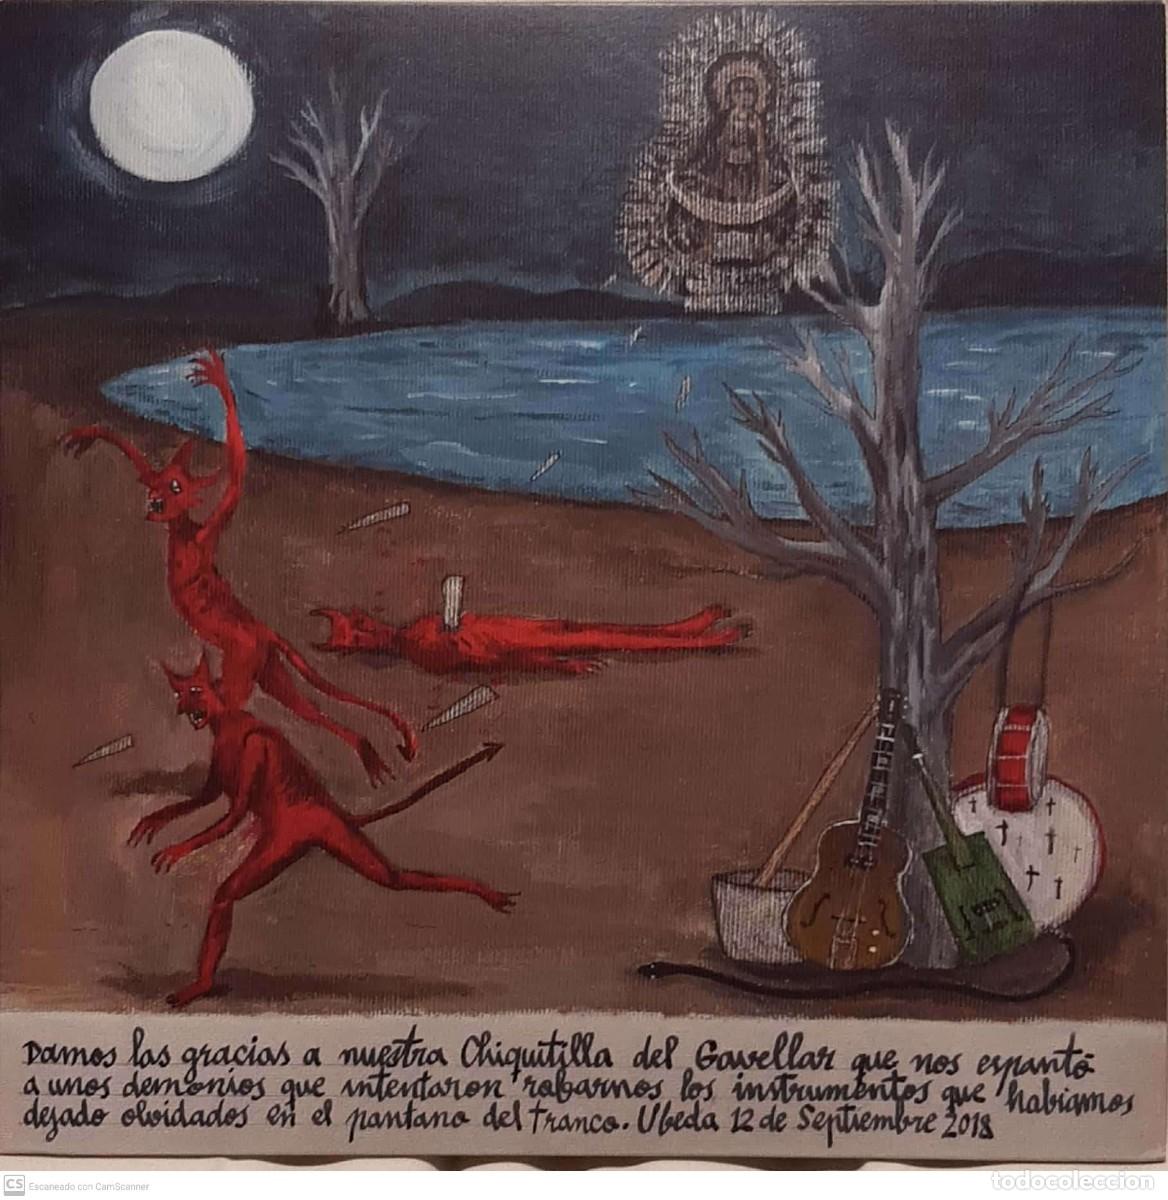 Damos las gracias a nuestra Chiquitilla del Gavellar que nos espantó
a unos demonios que intentaron robarnos los instrumentos que habiamos
dejado olvidados en el pantano del Tranco. Ubeda 12 de Septiembre 2018
CS Escaneado con CamScanner
todocoleccion